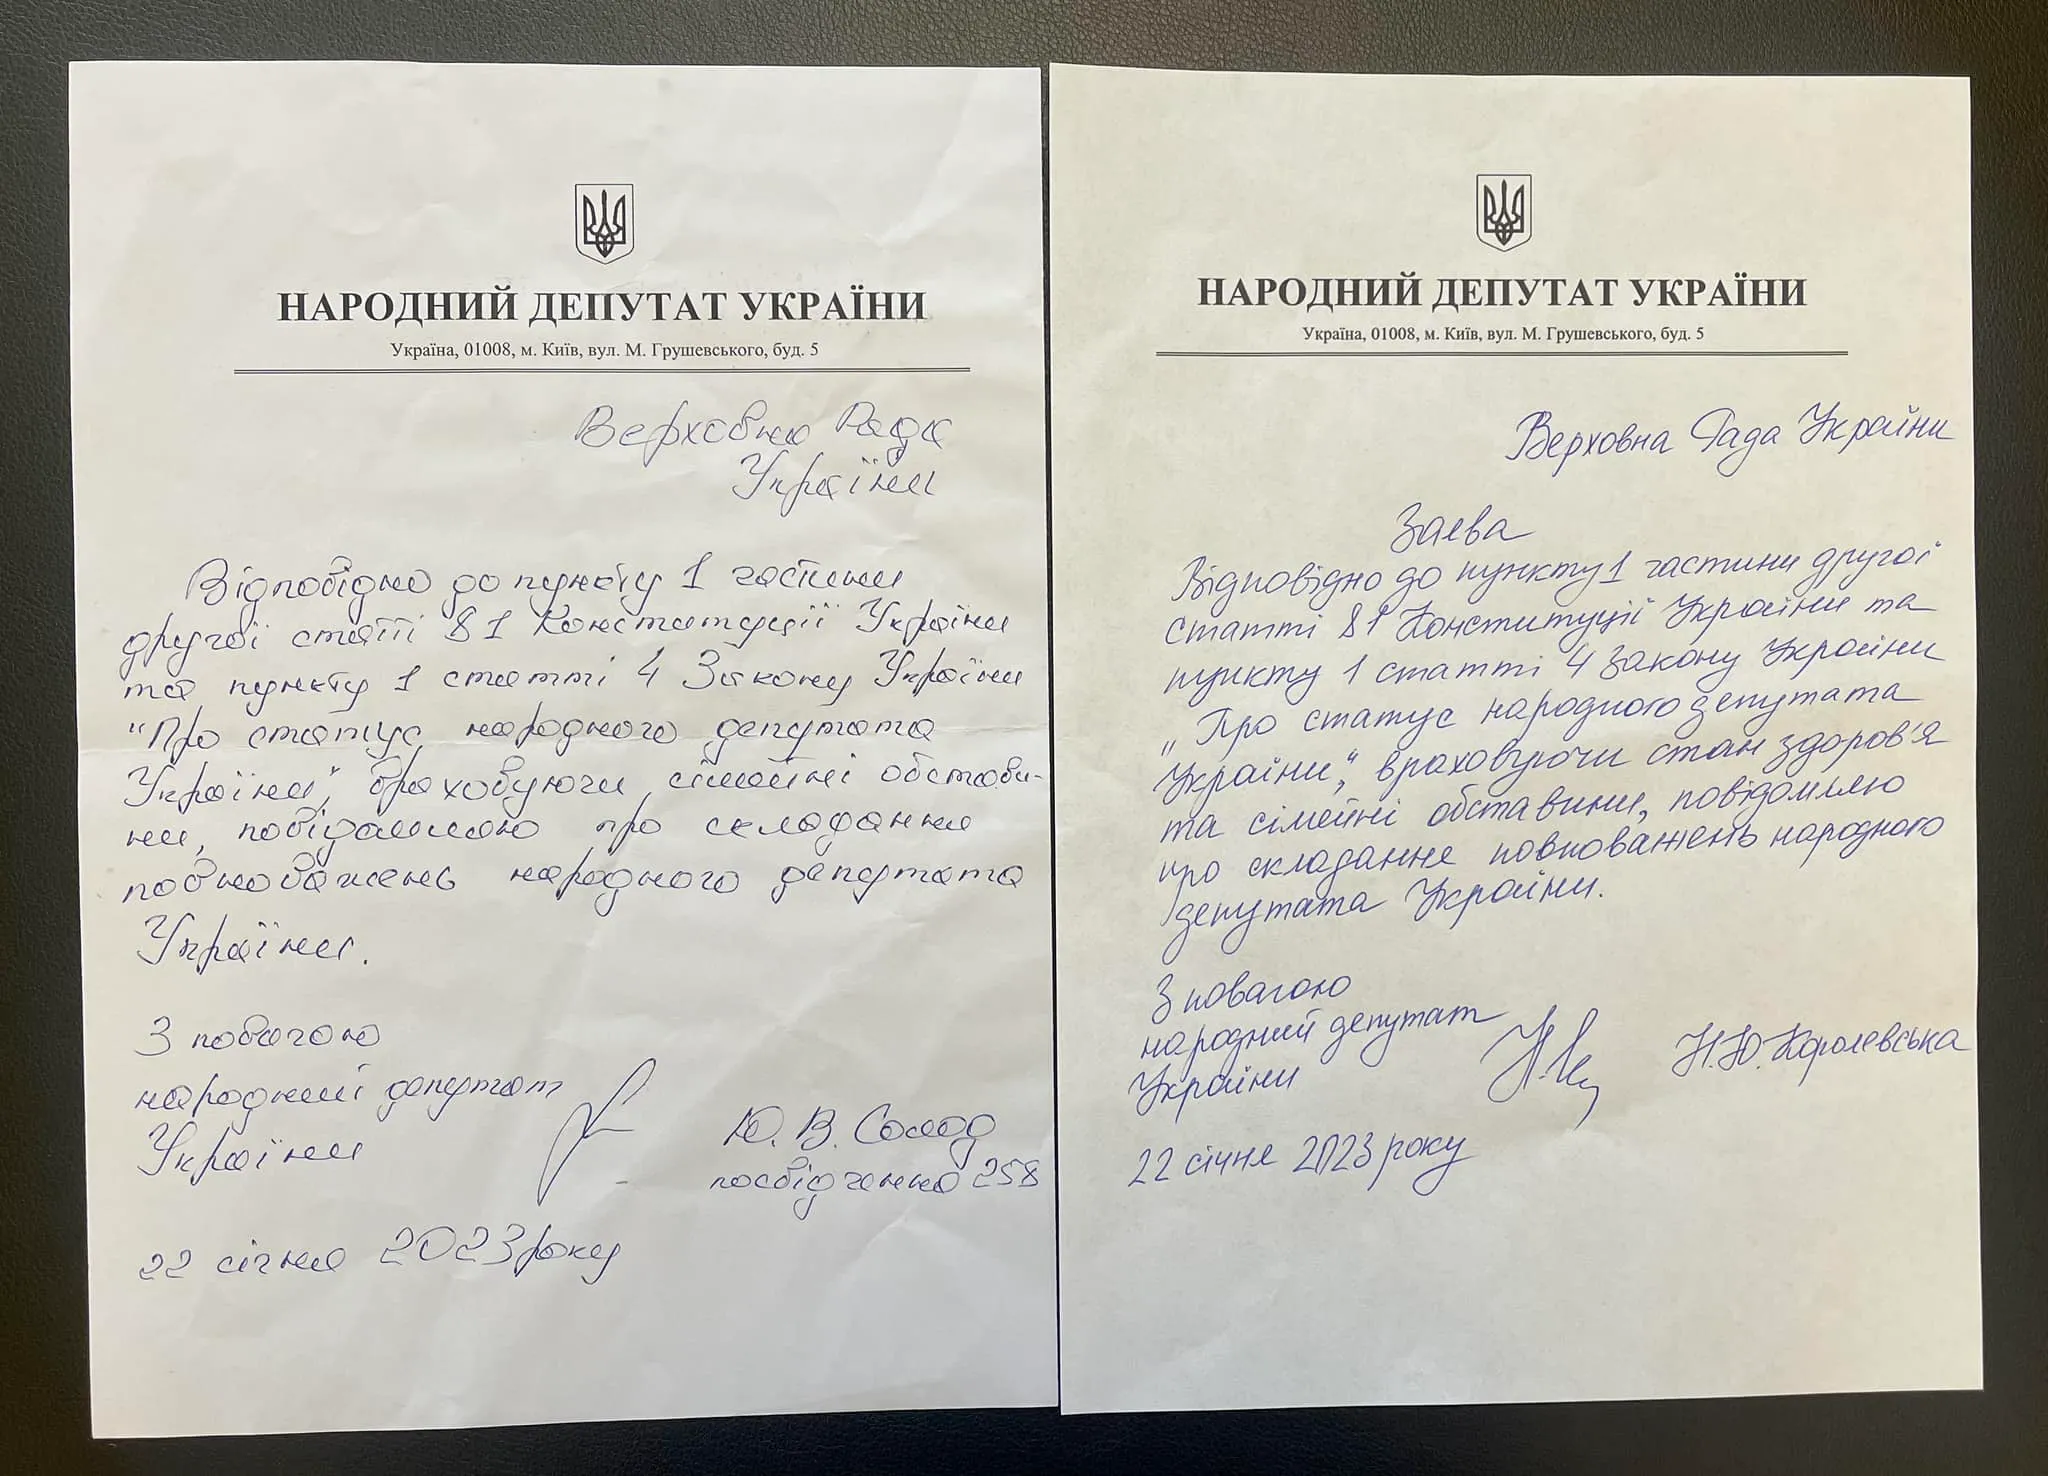 НАРОДНИЙ ДЕПУТАТ УКРАЇНИ
Україна, 01008, м. Київ, вул. М. Грушевського, буд. 5
Верховна Рада
України
Відповідно до пункту 1 частини
другої статті 81 Конституції України
та пункту 1 статті 4 Закону України
"Про статус народного депутата
України", враховуючи сімейні обстави-
ни, повідомляю про складання
повноважень народного депутата
України.
З повагою
народний депутат
України
Ю. В. Солод
посвідчення 258
22 січня 2023 року
НАРОДНИЙ ДЕПУТАТ УКРАЇНИ
Україна, 01008, м. Київ, вул. М. Грушевського, буд. 5
Верховна Рада України
Заява
Відповідно до пункту 1 частини другої
статті 81 Конституції України та
пункту 1 статті 4 Закону України
„Про статус народного депутата
України", враховуючи стан здоров'я
та сімейні обставини, повідомляю
про складання повноважень народного
депутата України.
З повагою
народний депутат
України
Н.Ю. Королевська
22 січня 2023 року